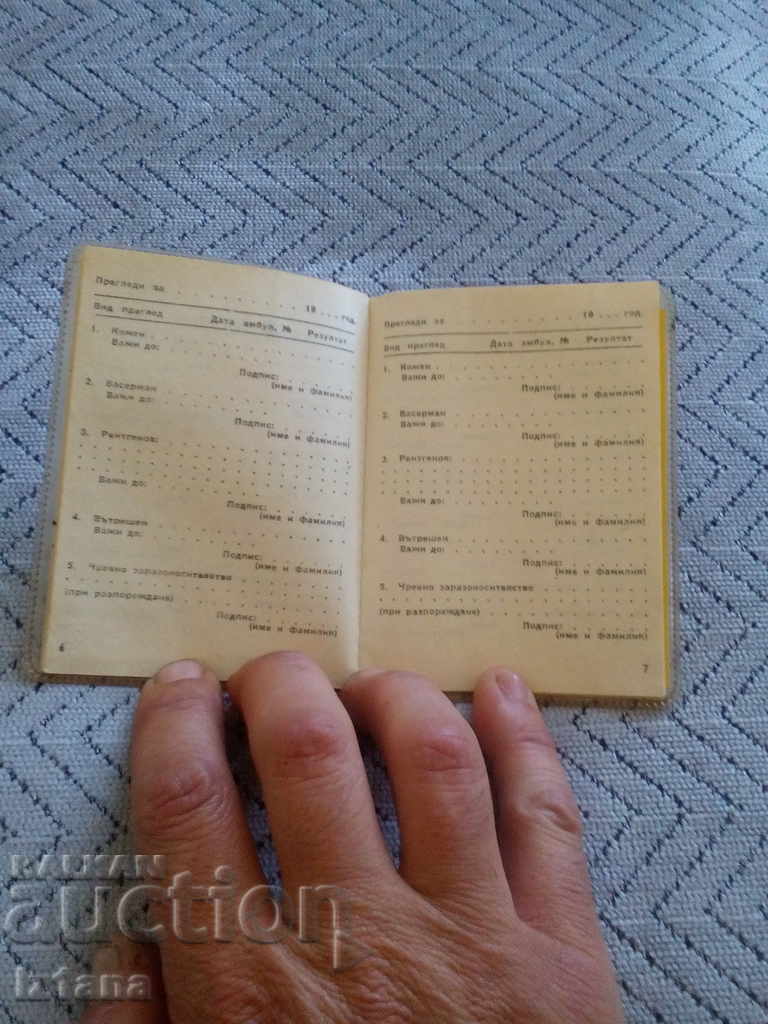 Прегледи за . . . . . . . . . . 19 . . . год.
Вид преглед Дата амбул. № Резултат
1. Кожен . . . . . . . . . . . . . .
Важи до: . . . . . .
Подпис: . . . . . .
(име и фамилия)
2. Васерман . . . . . . . . . . . .
Важи до: . . . . . .
Подпис: . . . . . .
(име и фамилия)
3. Рентгенов: . . . . . . . . . . .
Важи до: . . . . . .
Подпис: . . . . . .
(име и фамилия)
4. Вътрешен . . . . . . . . . . . .
Важи до: . . . . . .
Подпис: . . . . . .
(име и фамилия)
5. Чревно заразоносителство . . . . . .
(при разпореждане) . . . . . . . .
Подпис: . . . . . .
(име и фамилия)
6
Прегледи за . . . . . . . . . . 19 . . . год.
Вид преглед Дата амбул. № Резултат
1. Кожен . . . . . . . . . . . . . .
Важи до: . . . . . .
Подпис: . . . . . .
(име и фамилия)
2. Васерман . . . . . . . . . . . .
Важи до: . . . . . .
Подпис: . . . . . .
(име и фамилия)
3. Рентгенов: . . . . . . . . . . .
Важи до: . . . . . .
Подпис: . . . . . .
(име и фамилия)
4. Вътрешен . . . . . . . . . . . .
Важи до: . . . . . .
Подпис: . . . . . .
(име и фамилия)
5. Чревно заразоносителство . . . . . .
(при разпореждане) . . . . . . . .
Подпис: . . . . . .
(име и фамилия)
7
BALKAN
auction
Iztana